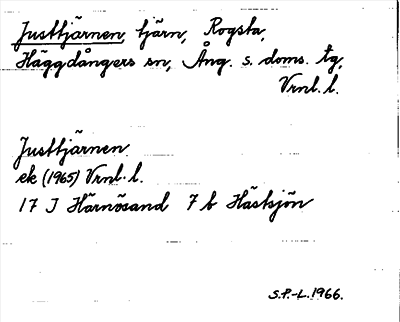 Justtjärnen, tjärn, Rogsta,
Häggdångers sn, Ång. s. doms. tg,
Vrnl. l.
Justtjärnen
ek (1965) Vrnl. l.
17 J Härnösand 7 b Hästsjön
S.P.-L. 1966.